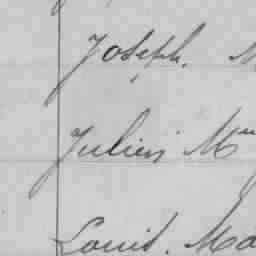 Joseph. M
Julien Mm
Louis. Ma